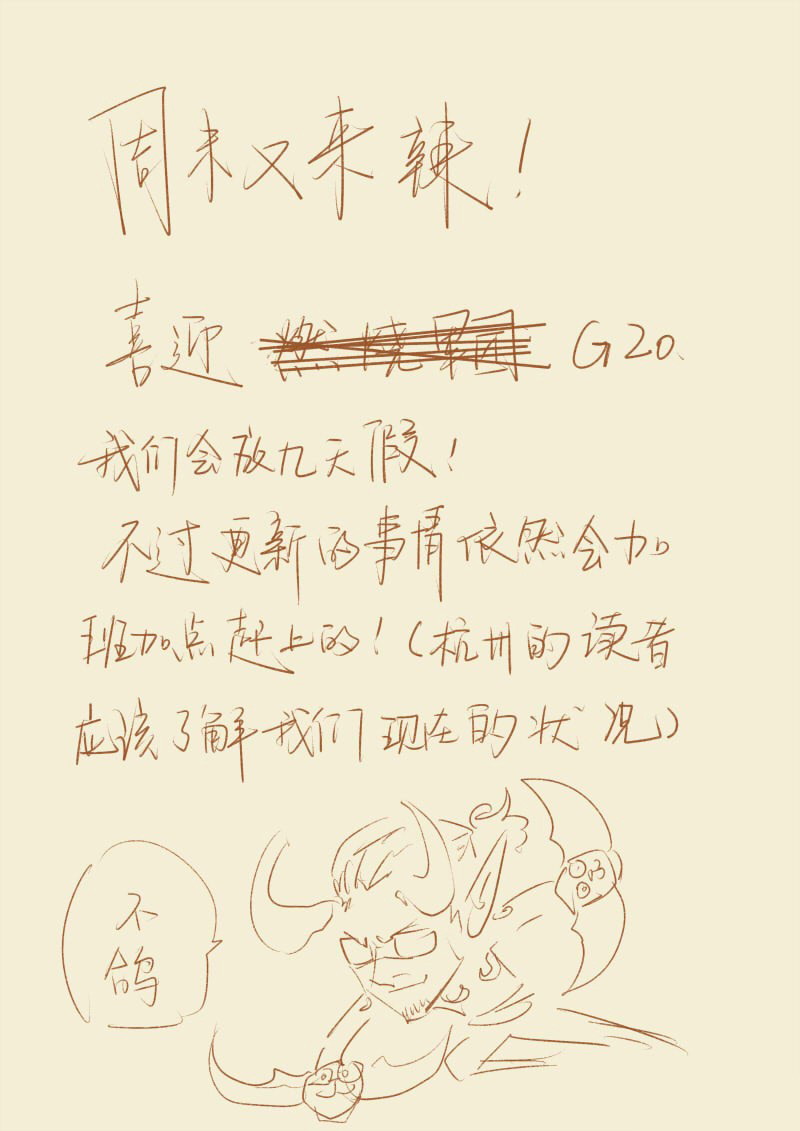 周末又来辣!
喜迎 燃烧军团 G20、
我们会放九天假!
不过更新的事情依然会加
班加点赶上的!(杭州的读者
应该了解我们现在的状况)
不
鸽